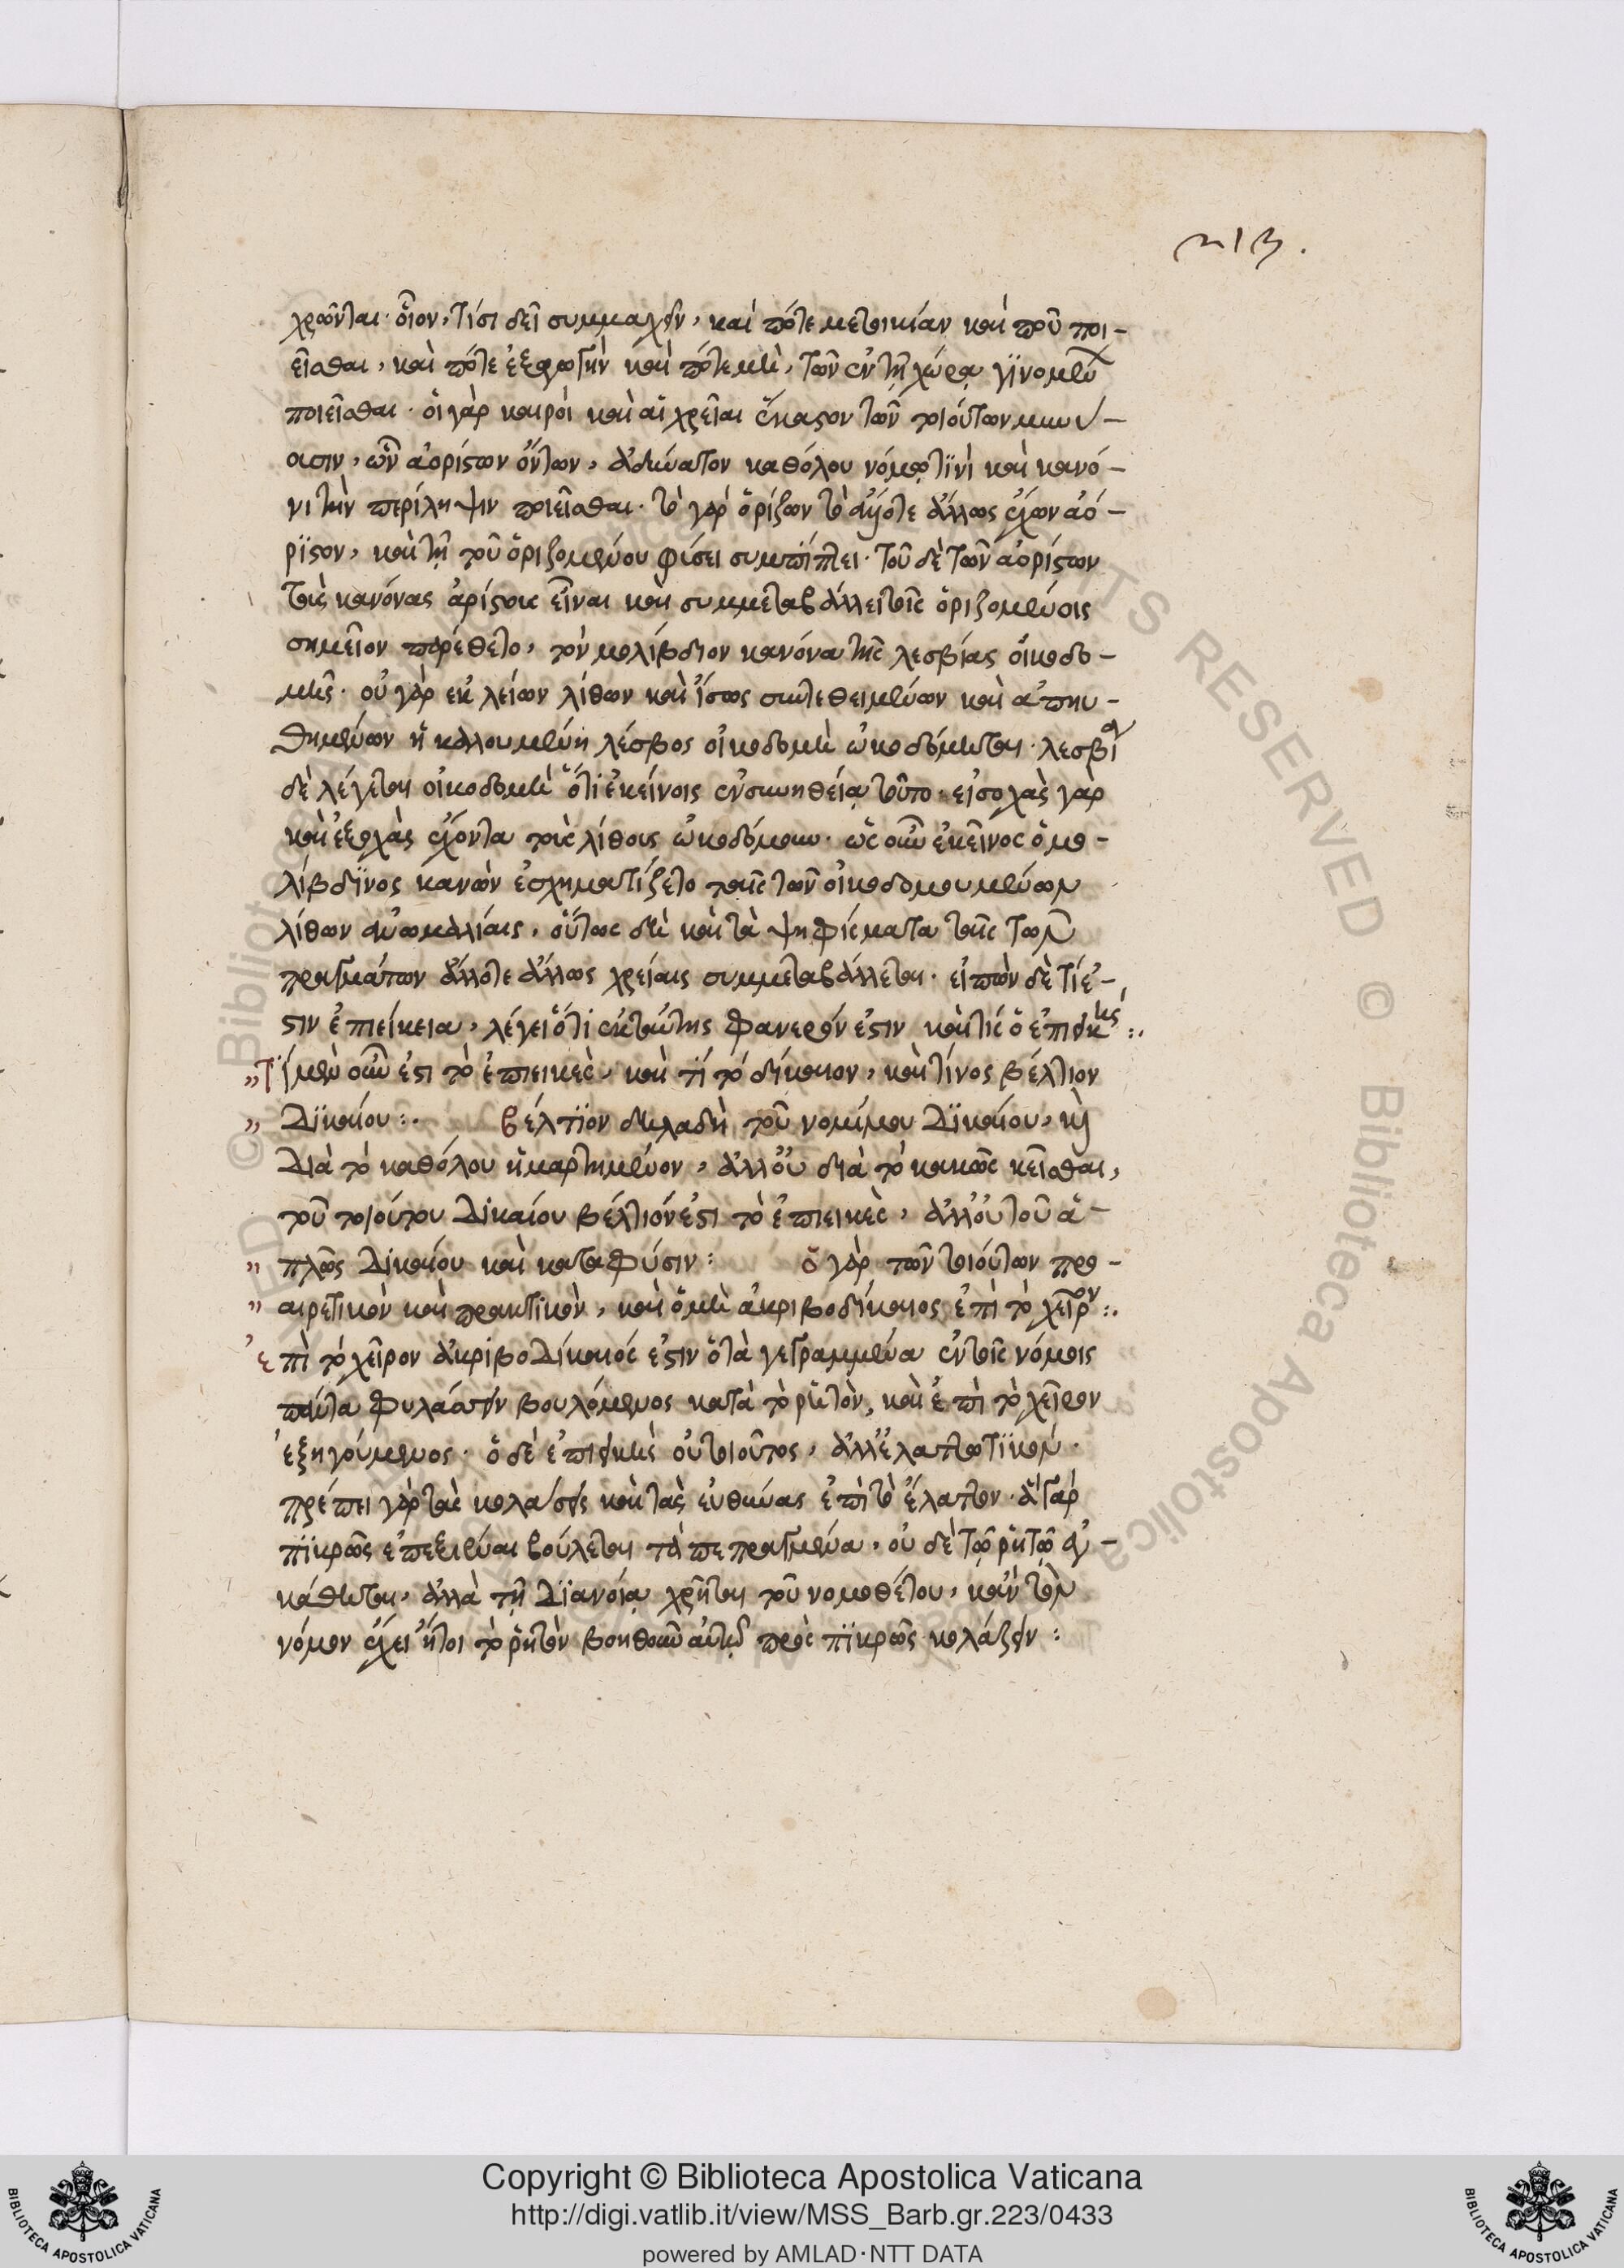 σιβ.
χρῶνται· οἷον, τίσι δεῖ συμμαχεῖν, καὶ πότε μετοικίαν καὶ ποῦ ποι-
εῖσθαι, καὶ πότε ἐξαγωγὴν καὶ πότε μὴ, τῶν ἐν τῇ χώρᾳ γινομένων
ποιεῖσθαι· οἱ γὰρ καιροὶ καὶ αἱ χρεῖαι ἕκαστον τῶν τοιούτων
ὧν ἀορίστων ὄντων, ἀδύνατον καθόλου νόμῳ τινὶ καὶ κανό-
νι τὴν περίληψιν ποιεῖσθαι· τὸ γὰρ ὁρίζον τὸ ἄλλοτε ἄλλως ἔχον ἀό-
ριστον, καὶ τῇ τοῦ ὁριζομένου φύσει συμπίπτει· τοῦ δὲ τῶν ἀορίστων
τοὺς κανόνας ἀορίστους εἶναι καὶ συμμεταβάλλει τοῖς ὁριζομένοις
σημεῖον παρέθετο, τὸν μολίβδινον κανόνα τῆς λεσβίας οἰκοδο-
μῆς· οὐ γὰρ ἐκ λείων λίθων καὶ ἴσως συντεθειμένων καὶ ἀπηυ-
θημένων ἡ καλουμένη λέσβος οἰκοδομὴ ᾠκοδόμηται· λεσβία
δὲ λέγεται οἰκοδομὴ ὅτι ἐκείνοις ἐν συνηθείᾳ τοῦτο· εἰσοχὰς γὰρ
καὶ ἐξοχὰς ἔχοντα τοῖς λίθοις ᾠκοδόμουν· ὡς οὖν ἐκεῖνος ὁ μο-
λίβδινος κανὼν ἐσχηματίζετο ταῖς τῶν οἰκοδομουμένων
λίθων ἀνωμαλίαις, οὕτως δὴ καὶ τὰ ψηφίσματα ταῖς τῶν
πραγμάτων ἄλλοτε ἄλλως χρείαις συμμεταβάλλεται· εἰπὼν δὲ τί ἐ-
στιν ἐπιείκεια, λέγει ὅτι ἐκ ταύτης φανερόν ἐστιν καὶ τίς ὁ ἐπιεικής:.
„ Τί μὲν οὖν ἐστι τὸ ἐπιεικὲς, καὶ τί τὸ δίκαιον, καὶ τίνος βέλτιον
„ Δικαίου:. Βέλτιον δηλαδὴ τοῦ νομίμου Δικαίου, καὶ
Διὰ τὸ καθόλου ἡμαρτημένον, ἀλλ' οὐ διὰ τὸ κακῶς κεῖσθαι,
τοῦ τοιούτου Δικαίου βέλτιόν ἐστι τὸ ἐπιεικὲς, ἀλλ' οὐ τοῦ ἁ-
„ πλῶς Δικαίου καὶ κατὰ φύσιν: ὁ γὰρ τῶν τοιούτων προ-
„ αιρετικὸν καὶ πρακτικὸν, καὶ ὁ μὴ ἀκριβοδίκαιος ἐπὶ τὸ χεῖρον:.
Ἐπὶ τὸ χεῖρον ἀκριβοδίκαιός ἐστιν ὁ τὰ γεγραμμένα ἐν τοῖς νόμοις
πάντα φυλάττειν βουλόμενος κατὰ τὸ ῥητὸν, καὶ ἐπὶ τὸ χεῖρον
ἐξηγούμενος· ὁ δὲ ἐπιεικὴς οὐ τοιοῦτος, ἀλλ' ἐλαττωτικὸν·
πρέπει γὰρ τὰς κολάσεις καὶ τὰς εὐθύνας ἐπὶ τὸ ἔλαττον· ἃ γὰρ
πικρῶς ἐπεξιέναι βούλεται τὰ πεπραγμένα, οὐδὲ τῷ ῥητῷ ἐγ-
κάθηται, ἀλλὰ τῇ Διανοίᾳ χρῆται τοῦ νομοθέτου, κἂν τὸν
νόμον ἔχει ἤτοι τὸ ῥητὸν βοηθοῦν αὐτῷ πρὸς πικρῶς κολάζειν:
Copyright © Biblioteca Apostolica Vaticana
http://digi.vatlib.it/view/MSS_Barb.gr.223/0433
powered by AMLAD·NTT DATA
BIBLIOTECA APOSTOLICA VATICANA
BIBLIOTECA APOSTOLICA VATICANA